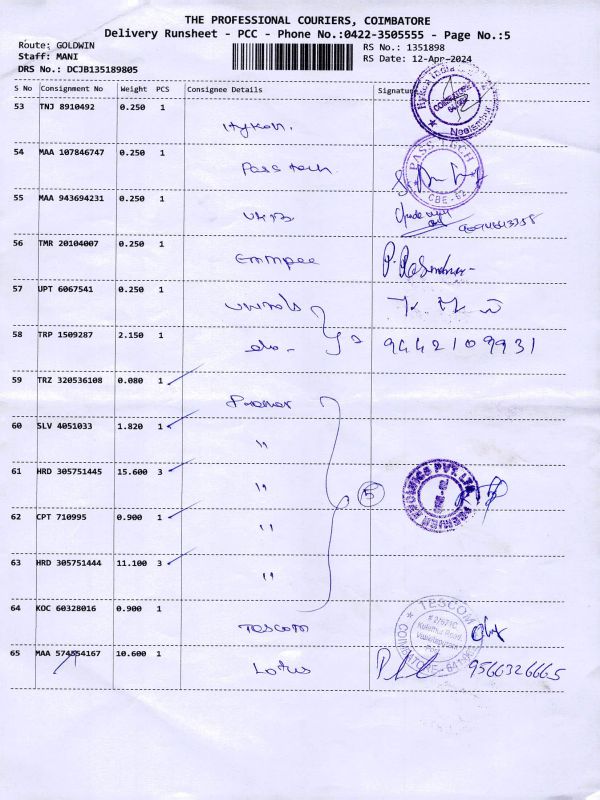 THE PROFESSIONAL COURIERS, COIMBATORE
Delivery Runsheet - PCC - Phone No.:0422-3505555 - Page No.:5
Route: GOLDWIN
RS No.: 1351898
Staff: MANI
RS Date: 12-Apr-2024
DRS No.: DCJB135189805
S No Consignment No Weight PCS Consignee Details Signature
53 TNJ 8910492 0.250 1
Hykon.
COIMBATORE
Neelambur
54 MAA 107846747 0.250 1
Pass tech
PASS-TECH
CBE-62
55 MAA 943694231 0.250 1
56 TMR 20104007 0.250 1
Emmpee
57 UPT 6067541 0.250 1
58 TRP 1509287 2.150 1
do - 9442109931
59 TRZ 320536108 0.080 1
60 SLV 4051033 1.820 1
"
61 HRD 305751445 15.600 3
"
5
62 CPT 710995 0.900 1
"
63 HRD 305751444 11.100 3
"
64 KOC 60328016 0.900 1
TESCOM
TESCOM
COIMBATORE
65 MAA 574554167 10.600 1
Lotus 9566326665